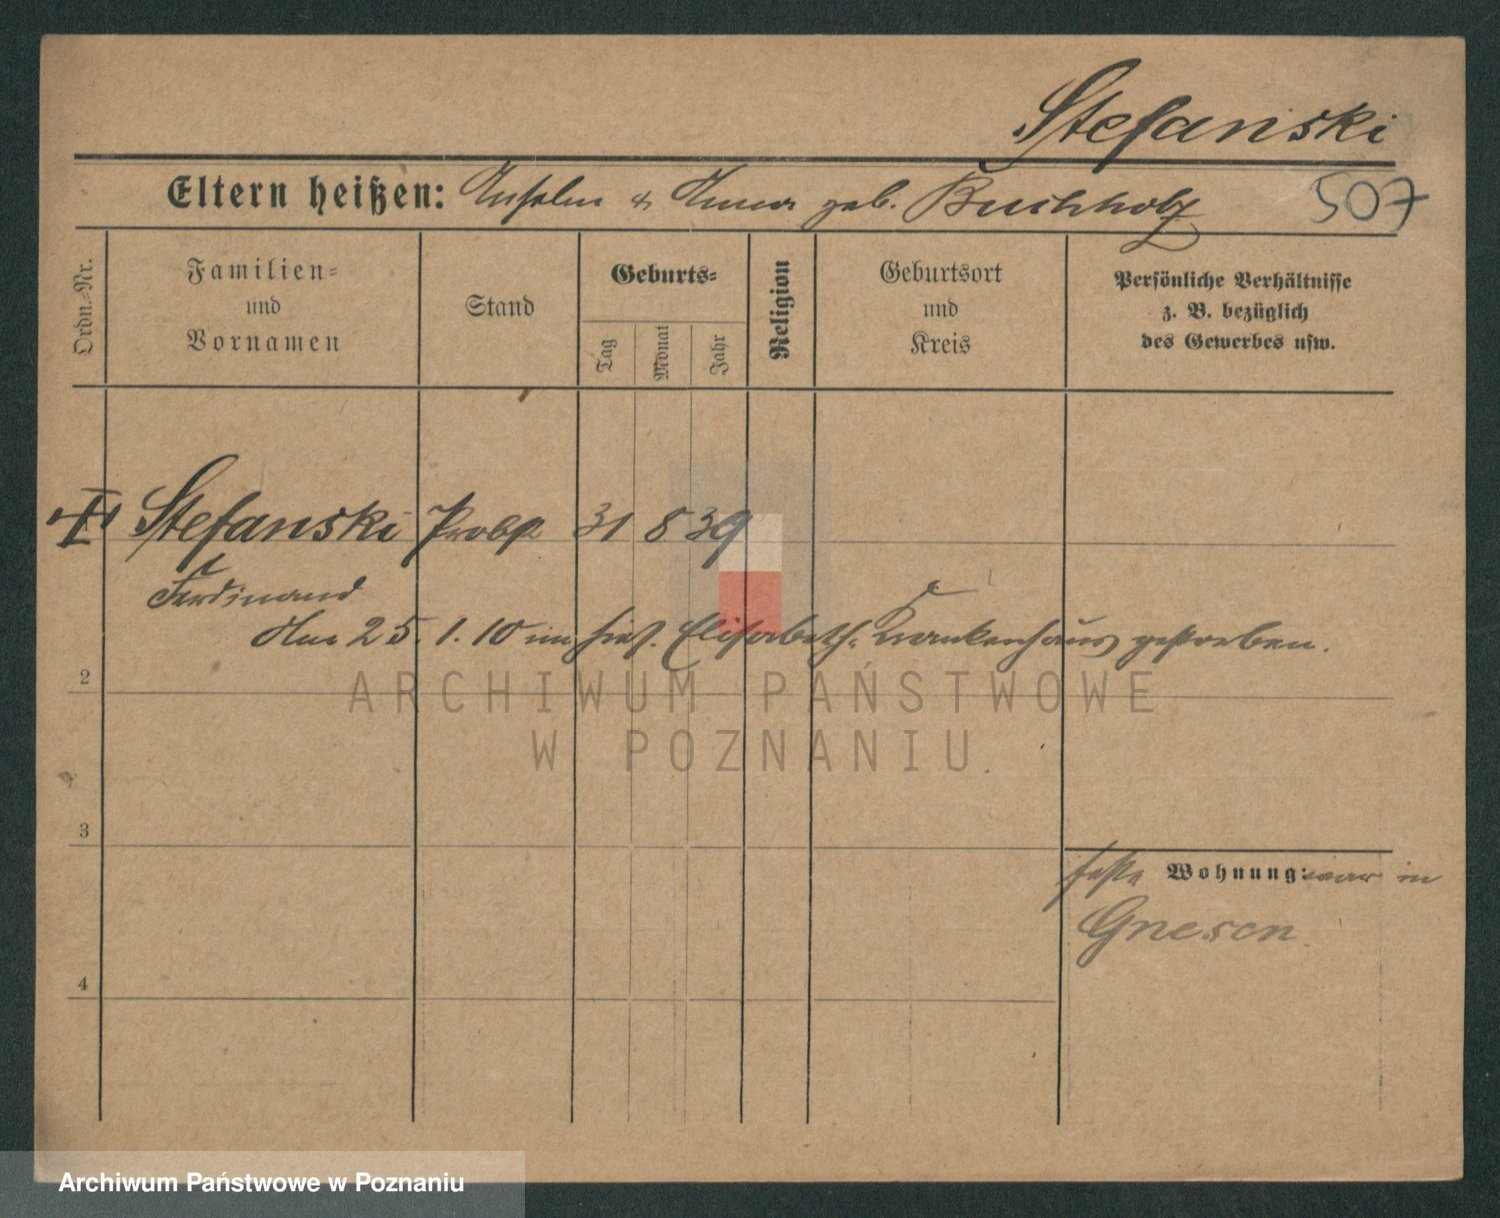 Stefanski
Eltern heißen: Anselm & Anna geb. Buchholz
507
Ordn.-Nr.
Familien-
und
Vornamen
Stand
Geburts-
Tag
Monat
Jahr
Religion
Geburtsort
und
Kreis
Persönliche Verhältnisse
z. B. bezüglich
des Gewerbes usw.
Stefanski Probst 31 8 39
Ferdinand
Am 25. 1. 10 im hies. Elisabeth. Krankenhaus gestorben.
2
ARCHIWUM PAŃSTWOWE
W POZNANIU
3
feste Wohnung: war in
Gnesen
4
Archiwum Państwowe w Poznaniu